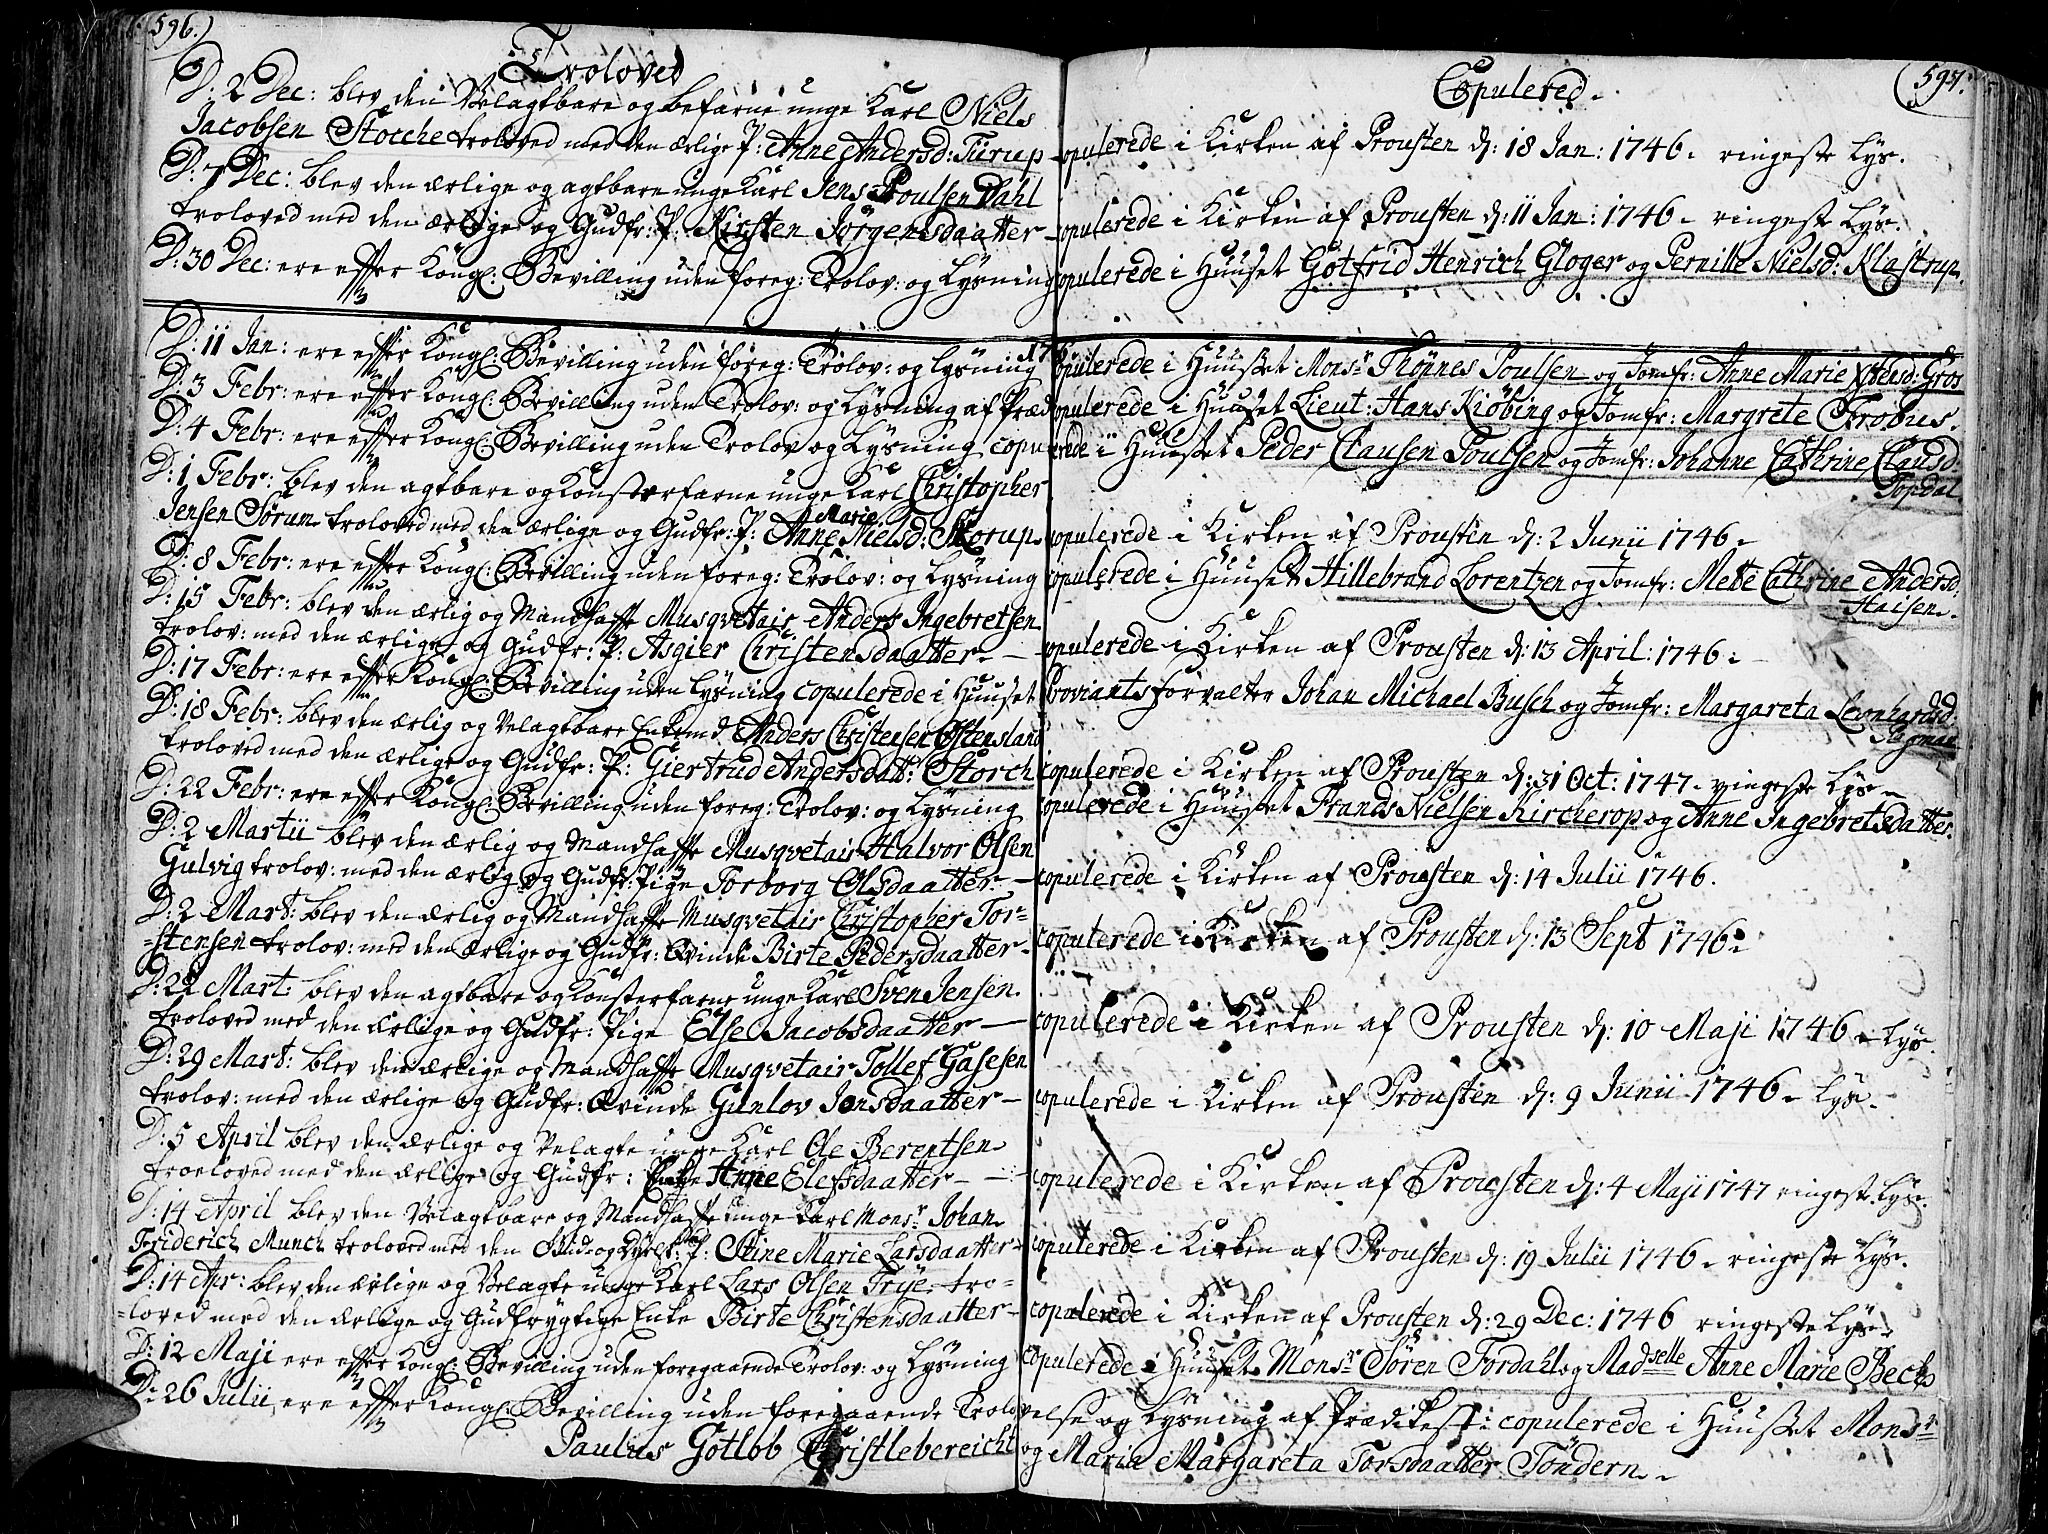 596.)
Troloved
D: 2 Dec: blev den Velagtbare og befarne unge Karl Niels
Jacobsen Storche troloved med den ærlige P: Anne Andersd: Turup
D: 7 Dec: blev den ærlige og agtbare unge Karl Jens Poulsen Dahl
troloved med den ærlige og Gudfr: P: Kirsten Jörgensdaatter
D: 30 Dec: ere effter Kongl: Bevilling uden foreg: Trolov: og Lysning
D: 11 Jan: ere effter Kongl: Bevilling uden foreg: Trolov: og Lysning
D: 3 Febr: ere effter Kongl: Bevilling uden Trolov: og Lysning af Præd
D: 4 Febr: ere effter Kongl: Bevilling uden Trolov og Lysning copu
D: 1 Febr: blev den agtbare og Konsterfarne unge Karl Christopher
Jensen Sörum troloved med den ærlige og Gudfr: P: Anne Marie Nielsd: Storup
D: 8 Febr: ere effter Kongl: Bevilling uden foreg: Trolov: og Lysning
D: 15 Febr: blev den ærlig og Mandhaffte Musqvetair Anders Ingebretsen
trolov: med den ærlige og Gudfr: P: Asgier Christensdaatter
D: 17 Febr: ere effter Kongl: Bevilling uden Lysning copulerede i Huuset
D: 18 Febr: blev den ærlig og Velagtbare Enkemd Anders Christensen Östensland
troloved med den ærlige og Gudfr: P: Giertrud Andersdatt: Storch
D: 22 Febr: ere effter Kongl: Bevilling uden foreg: Trolov: og Lysning
D: 2 Martii blev den ærlig og Mandhaffte Musqvetair Halvor Olsen
Gulvig trolov: med den ærlig og Gudfr: Pige Torborg Olsdaatter
D: 2 Mart: blev den ærlig og Mandhaffte Musqvetair Christopher Tor=
=stensen trolov: med den ærlige og Gudfr: Qvinde Birte Pedersdaatter
D: 22 Mart: blev den agtbare og Konsterfarne unge Karl Sven Jensen
troloved med den ærlige og Gudfr: Pige Else Jacobsdaatter
D: 29 Mart: blev den ærlige og Mandhaffte Musqvetair Tollef Gasesen
trolov: med den ærlige og Gudfr: Qvinde Gunlov Jonsdaatter
D: 5 April blev den ærlige og Velagte unge Karl Ole Berentsen
troeloved med den ærlige og Gudfr: Enke Anne Elefsdaatter
D: 14 April blev den Velagtbare og Mandhaffte unge Karl Monsr Johan
Friderich Munch troloved med den Gud- og Dydel: P: Stine Marie Larsdaatter
D: 14 Apr: blev den ærlige og Velagte unge Karl Lars Olsen Frye tro=
=loved med den ærlige og Gudfrygtige Enke Birte Christensdaatter
D: 12 Maji ere effter Kongl: Bevilling uden foregaaende Trolov: og Lysning
D: 26 Julii, ere effter Kongl: Bevilling uden foregaaende Trolov
Paulus Gotlob Christlebereicht
(597.
Copulered.
copulerede i Kirken af Prousten d: 18 Jan: 1746. ringeste Lys.
copulerede i Kirken af Prousten d: 11 Jan: 1746. ringest Lys.
copulerede i Huuset Gotfrid Henrich Gloger og Pernille Nielsd: Klastrup.
copulerede i Huuset Monsr Thönnes Poulsen og Jomfr: Anne Marie Gros
copulerede i Huuset Lieut: Hans Kiöbing og Jomfr: Margrete Frobus.
lerede i Huuset Peder Clausen Poulsen og Jomfr: Johanne Cathrine Clausd:
Topdal
copulerede i Kirken af Prousten d: 2 Junii 1746.
copulerede i Huuset Hillebrand Lorentzen og Jomfr: Mette Cathrine Andersd:
Haisen.
copulerede i Kirken af Prousten d: 13 April: 1746.
Proviantsforvalter Johan Michael Busch og Jomfr: Margareta Leonhardsd:
copulerede i Kirken af Prousten d: 31 Oct: 1747. ringeste Lys
copulerede i Huuset Frands Nielsen Kircherop og Anne Ingebretsdatter.
copulerede i Kirken af Prousten d: 14 Julii 1746.
copulerede i Kirken af Prousten d: 13 Sept 1746.
copulerede i Kirken af Prousten d: 10 Maji 1746. Lys.
copulerede i Kirken af Prousten d: 9 Junii 1746. Lys.
copulerede i Kirken af Prousten d: 4 Maji 1747 ringest. Lys.
copulerede i Kirken af Prousten d: 19 Julii 1746. ringeste Lys.
copulerede i Kirken af Prousten d: 29 Dec: 1746 ringeste Lys.
copulerede i Huuset Monsr Sören Fordahl og Madselle Anne Marie Beck
velse og Lysning af Prædikest: copulerede i Huuset Monsr
og Maria Margareta Torsdaatter Töndern.